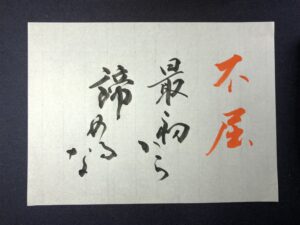 不屈
最初から
諦めるな